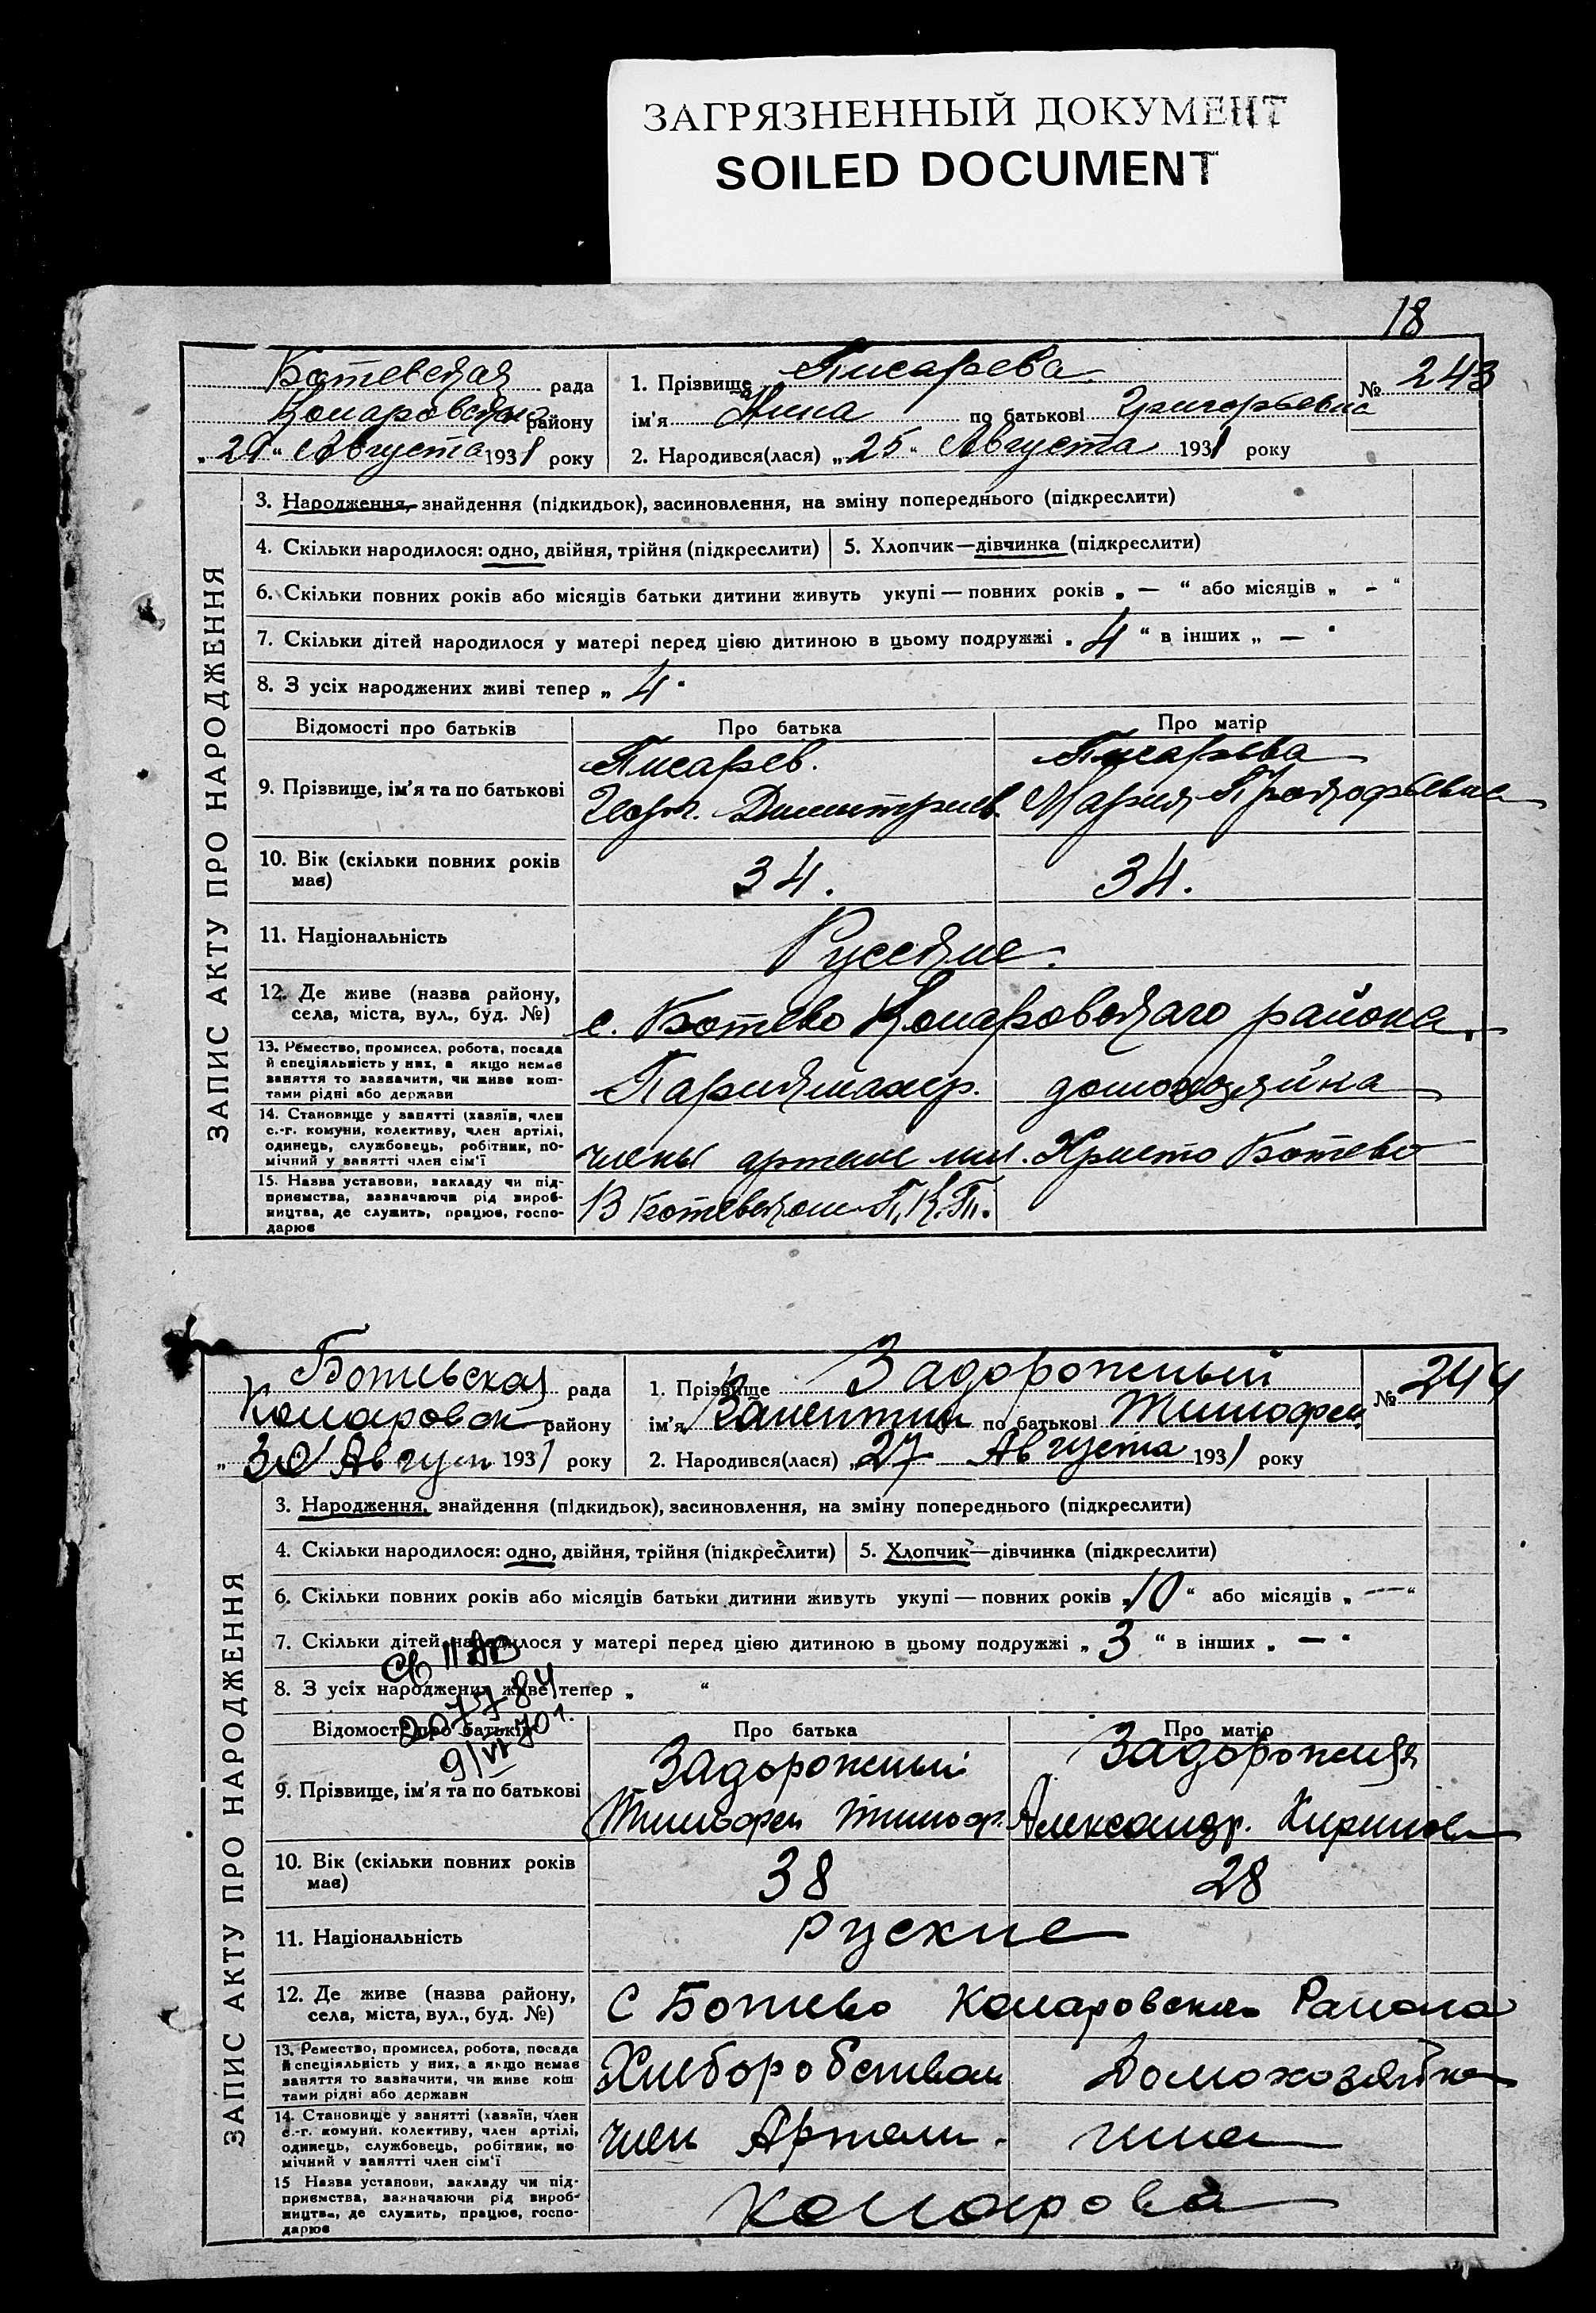 ЗАГРЯЗНЕННЫЙ ДОКУМЕНТ
SOILED DOCUMENT
18
Ботевская рада
района
„29“ Августа 1931 року
1. Прізвище Писарева
ім'я Нина по батькові Григорьевна
2. Народився(лася) „25“ Августа 1931 року
№ 243
ЗАПИС АКТУ ПРО НАРОДЖЕННЯ
3. Народження, знайдення (підкидьок), засиновлення, на зміну попереднього (підкреслити)
4. Скільки народилося: одно, двійня, трійня (підкреслити)
5. Хлопчик—дівчинка (підкреслити)
6. Скільки повних років або місяців батьки дитини живуть укупі — повних років „ — “ або місяців „ - “
7. Скільки дітей народилося у матері перед цією дитиною в цьому подружжі „ 4 “ в інших „ — “
8. З усіх народжених живі тепер „ 4 “
Відомості про батьків
Про батька
Про матір
9. Прізвище, ім'я та по батькові
Писарев.
Писарева
Мария Прокофьевна
10. Вік (скільки повних років має)
34.
34.
11. Національність
Русские.
12. Де живе (назва району,
села, міста, вул., буд. №)
с. Ботево Комаровского района.
13. Ремество, промисел, робота, посада
й спеціяльність у них, а якщо немає
заняття то зазначити, чи живе кош-
тами рідні або держави
Парикмахер.
домохозяйка
14. Становище у занятті (хазяїн, член
с.-г. комуни, колективу, член артілі,
одинець, службовець, робітник, по-
мічний у занятті член сім'ї
члены артели им. Христо Ботево
15. Назва установи, закладу чи під-
приємства, зазначаючи рід вироб-
ництва, де служить, працює, госпо-
дарює
В Ботевском П.К.Т.
Ботевская рада
Комаровск району
„30“ Август 1931 року
1. Прізвище Задорожный
ім'я Валентин по батькові Тимофеи
2. Народився(лася) „27 Августа 1931 року
№ 244
ЗАПИС АКТУ ПРО НАРОДЖЕННЯ
3. Народження, знайдення (підкидьок), засиновлення, на зміну попереднього (підкреслити)
4. Скільки народилося: одно, двійня, трійня (підкреслити)
5. Хлопчик—дівчинка (підкреслити)
6. Скільки повних років або місяців батьки дитини живуть укупі — повних років „10“ або місяців „—“
7. Скільки дітей народилося у матері перед цією дитиною в цьому подружжі „ 3 “ в інших „ — “
8. З усіх народжених живе тепер „ “
Відомості про батьків
Про батька
Про матір
9. Прізвище, ім'я та по батькові
Задорожный
Задорожная
Тимофеи Тимоф.
Александр. Кирилов
10. Вік (скільки повних років має)
38
28
11. Національність
Руские
12. Де живе (назва району,
села, міста, вул., буд. №)
С Ботево Комаровского Раиона
13. Ремество, промисел, робота, посада
й спеціяльність у них, а якщо немає
заняття то зазначити, чи живе кош
тами рідні або держави
Хлеборобством
Домохозяйка
14. Становище у занятті (хазяїн, член
с.-г. комуни, колективу, член артілі,
одинець, службовець, робітник, по
мічний у занятті член сім'ї
член Артели.
15 Назва установи, закладу чи під-
приємства, зазначаючи рід вироб-
ництва, де служить, працює, госпо-
дарює
Комарова